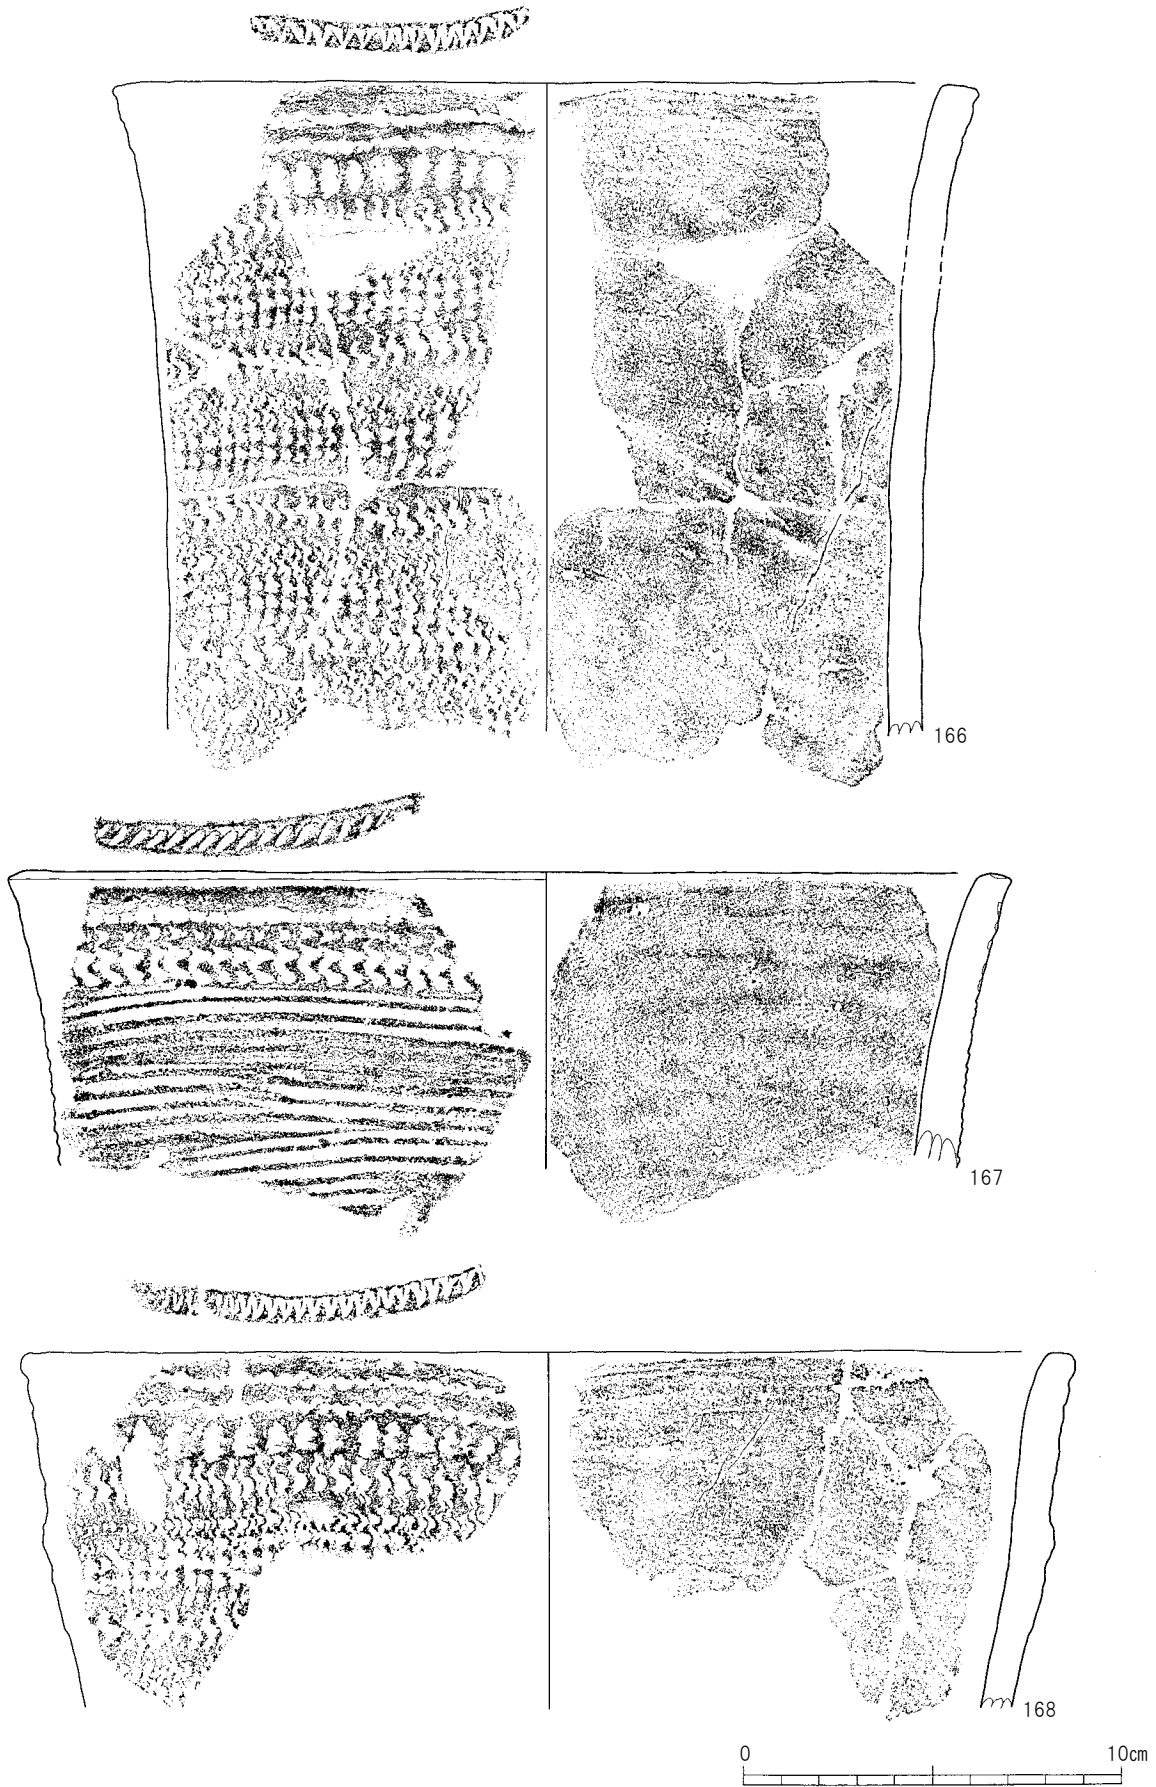 166
167
168
0 10cm